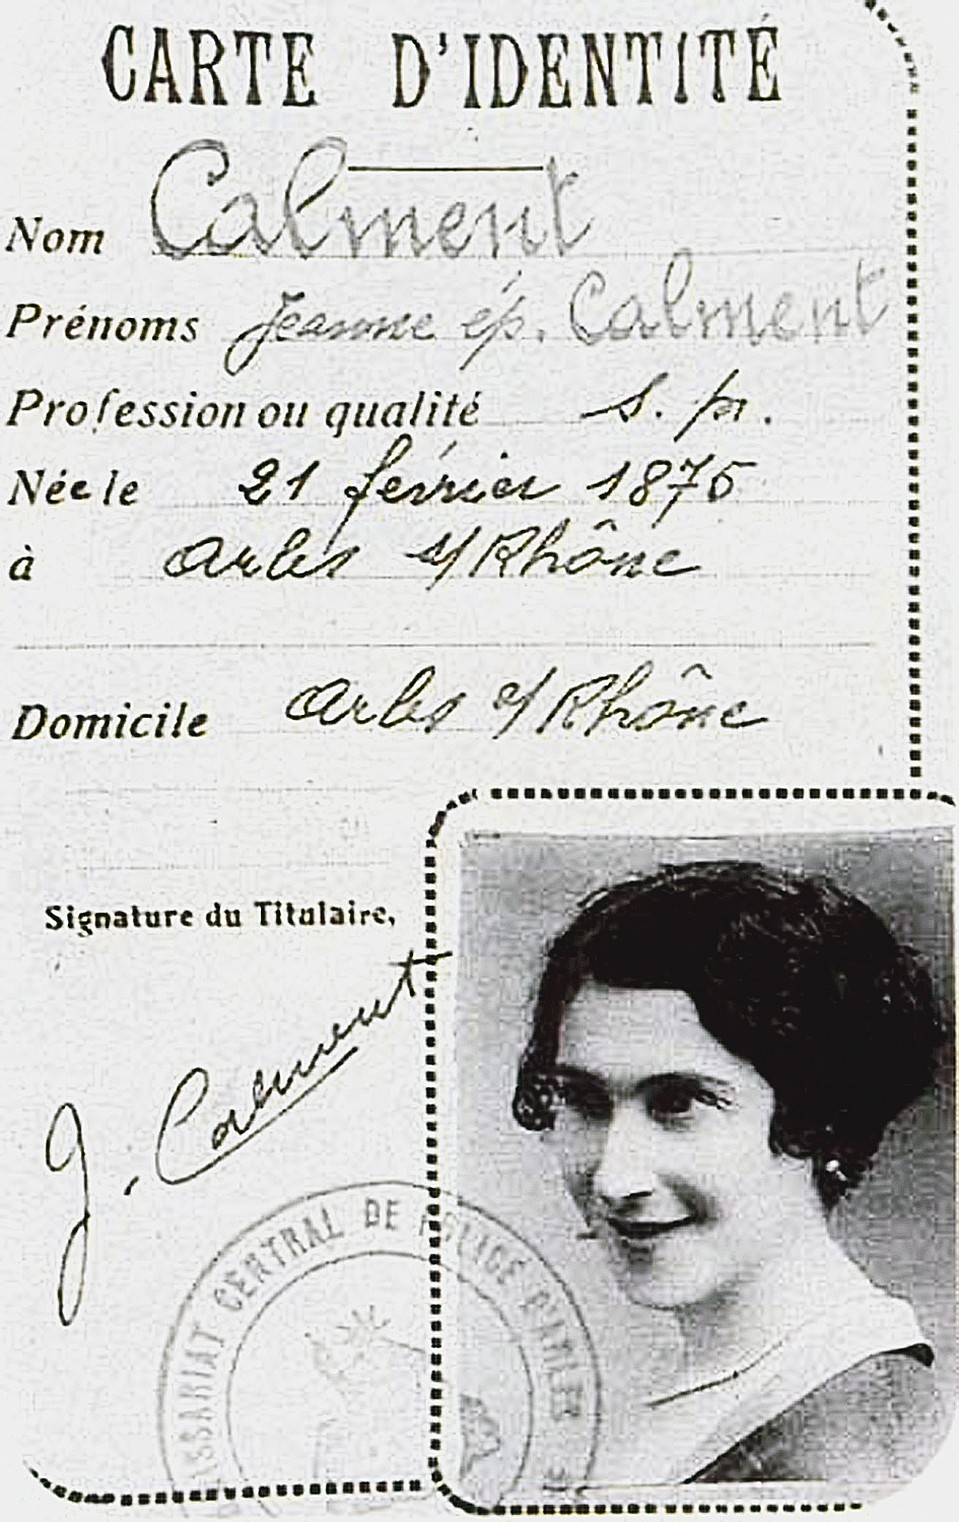 CARTE D'IDENTITÉ
Nom Calment
Prénoms Jeanne ép. Calment
Profession ou qualité s. pr.
Née le 21 février 1875
à Arles s/Rhône
Domicile Arles s/Rhône
Signature du Titulaire,
J. Calment
ISSARIAT CENTRAL DE POLICE D'ARLES